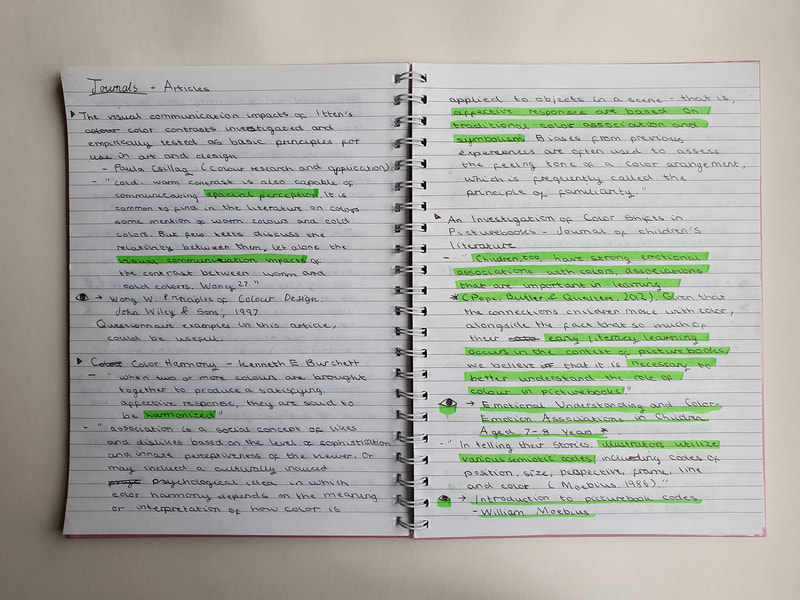 Journals + Articles
The visual communication impacts of Itten's
colour color contrasts investigated and
empirically tested as basic principles for
use in art and design
- Paula Csillag (Colour research and application)
- "cold-warm contrast is also capable of
communicating spacial perception. It is
common to find in the literature on colors
some mention of warm colours and cold
colors. But few texts discuss the
relativity between them, let alone the
visual communication impacts of
the contrast between warm and
cold colors, Wong 27"
→ Wong W. Principles of Colour Design.
John Wiley & Sons, 1997
Questionnaire examples in this article,
could be useful.
Color Color Harmony - Kenneth E Burchett
- "when two or more colours are brought
together to produce a satisfying
affective response, they are said to
be harmonized"
- "association is a social concept of likes
and dislikes based on the level of sophistication
and innate perceptiveness of the viewer. Or
may include a culturally
psychological idea in which
color harmony depends on the meaning
or interpretation of how color is
applied to objects in a scene - that is,
affective responses are based on
traditional color association and
symbolism. Biases from previous
experiences are often used to assess
the feeling tone of a color arangement,
which is frequently called the
principle of familiarity."
An Investigation of Color Shifts in
Picturebooks - Journal of children's
literature
- "Children, too, have strong emotional
associations with colors, associations
that are important in learning
*(Pope, Butler, & Qualter, 2012). Given that
the connections children make with color,
alongside the fact that so much of
their early literacy learning
occurs in the context of picturebooks,
we believe that it is necessary to
better understand the role of
colour in picturebooks."
→ Emotional Understanding and Color-
Emotion Associations in Children
Aged 7-8 Years *
- "In telling their stories, illustrators utilize
various semiotic codes, including codes of
position, size, perspective, frame, line
and color (Moebius, 1986)."
→ Introduction to picturebook codes
- William Moebius